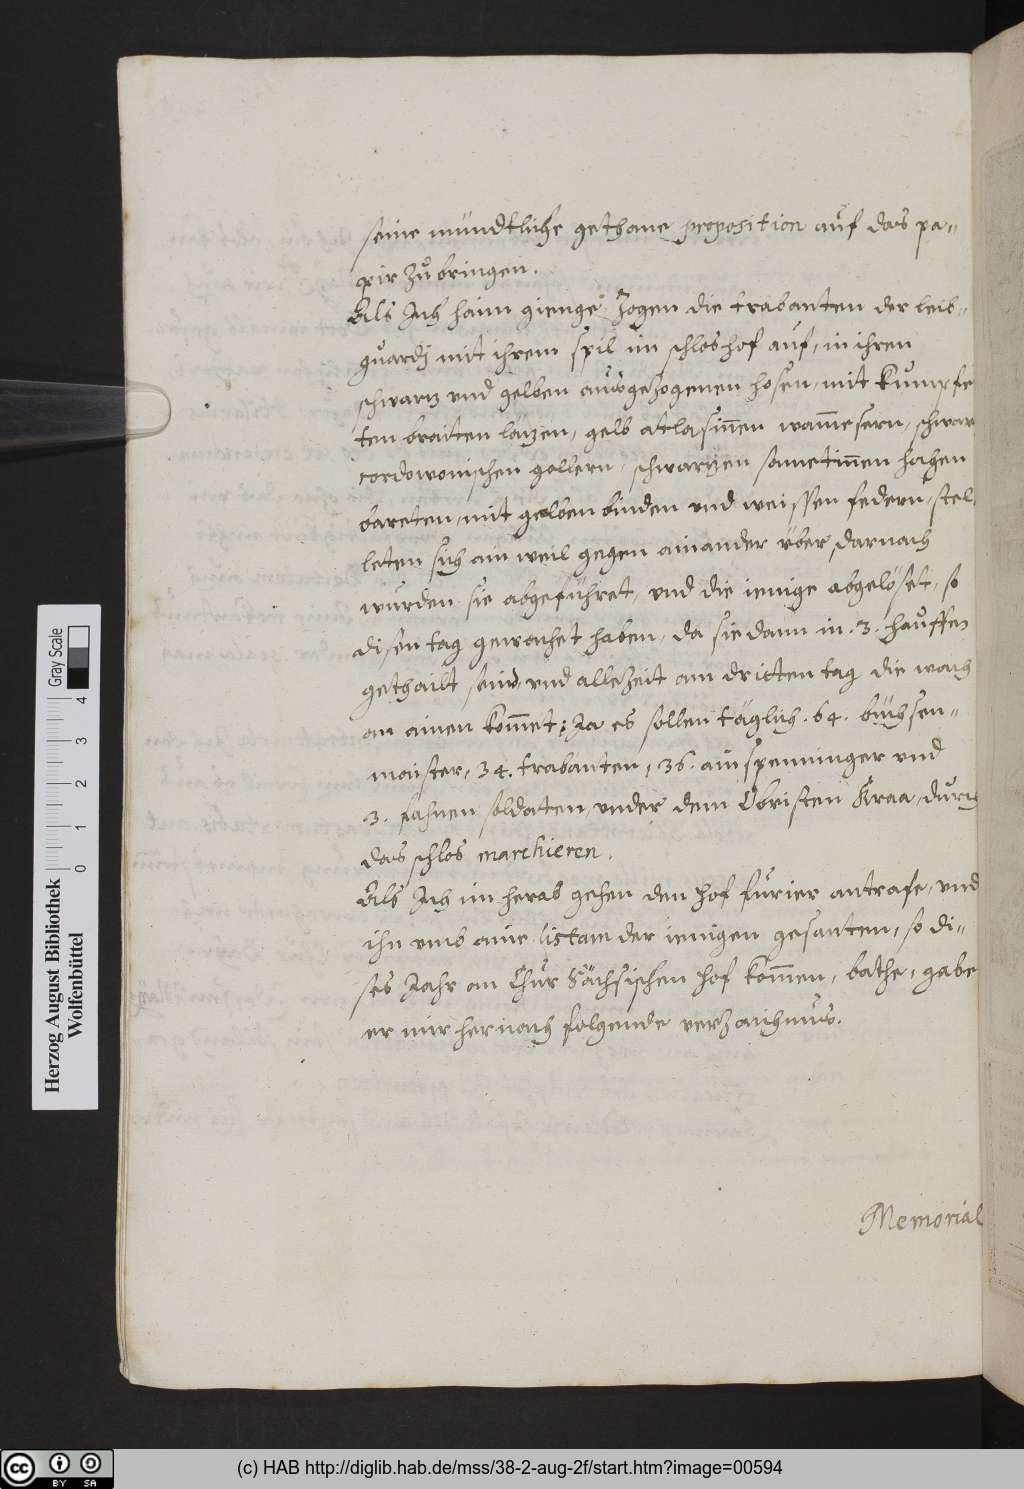 seine mündtliche gethane proposition auf das pa-
pir zu bringen.
Als Ich haim gienge, zogen die trabanten der leib-
guardj mit ihrem spil im schloshof auf, in ihren
schwarz vnd gelben ausgezogenen hosen, mit
ten braiten läzen, gelb atlasinnen wammesern, schwarz
cordowonischen gollern, schwarzen sametinnen hohen
bareten, mit gelben binden vnd weissen federn, stel-
leten sich ain weil gegen ainander über, darnach
wurden sie abgeführet, vnd die ienige abgelöset, so
disen tag gewachet haben, da sie dann in .3. hauffen
gethailt seind, vnd allezeit am dritten tag die wach
an ainen kommet; Ja es sollen täglich .64. büchsen-
maister, 34. trabanten, 36. ainspenninger vnd
3. fahnen soldaten, vnder dem Obristen Kraa, durch
das schlos marchieren.
Als Ich im herab gehen den hof furier antrafe, vnd
ihn vmb aine listam der ienigen gesanten, so di-
ses Jahr an Chur Sächsischen hof kommen, bathe, gabe
er mir hernach folgende verzaichnus.
Memorial
Herzog August Bibliothek
Wolfenbüttel
Gray Scale
0 1 2 3 4
cc BY SA
(c) HAB http://diglib.hab.de/mss/38-2-aug-2f/start.htm?image=00594